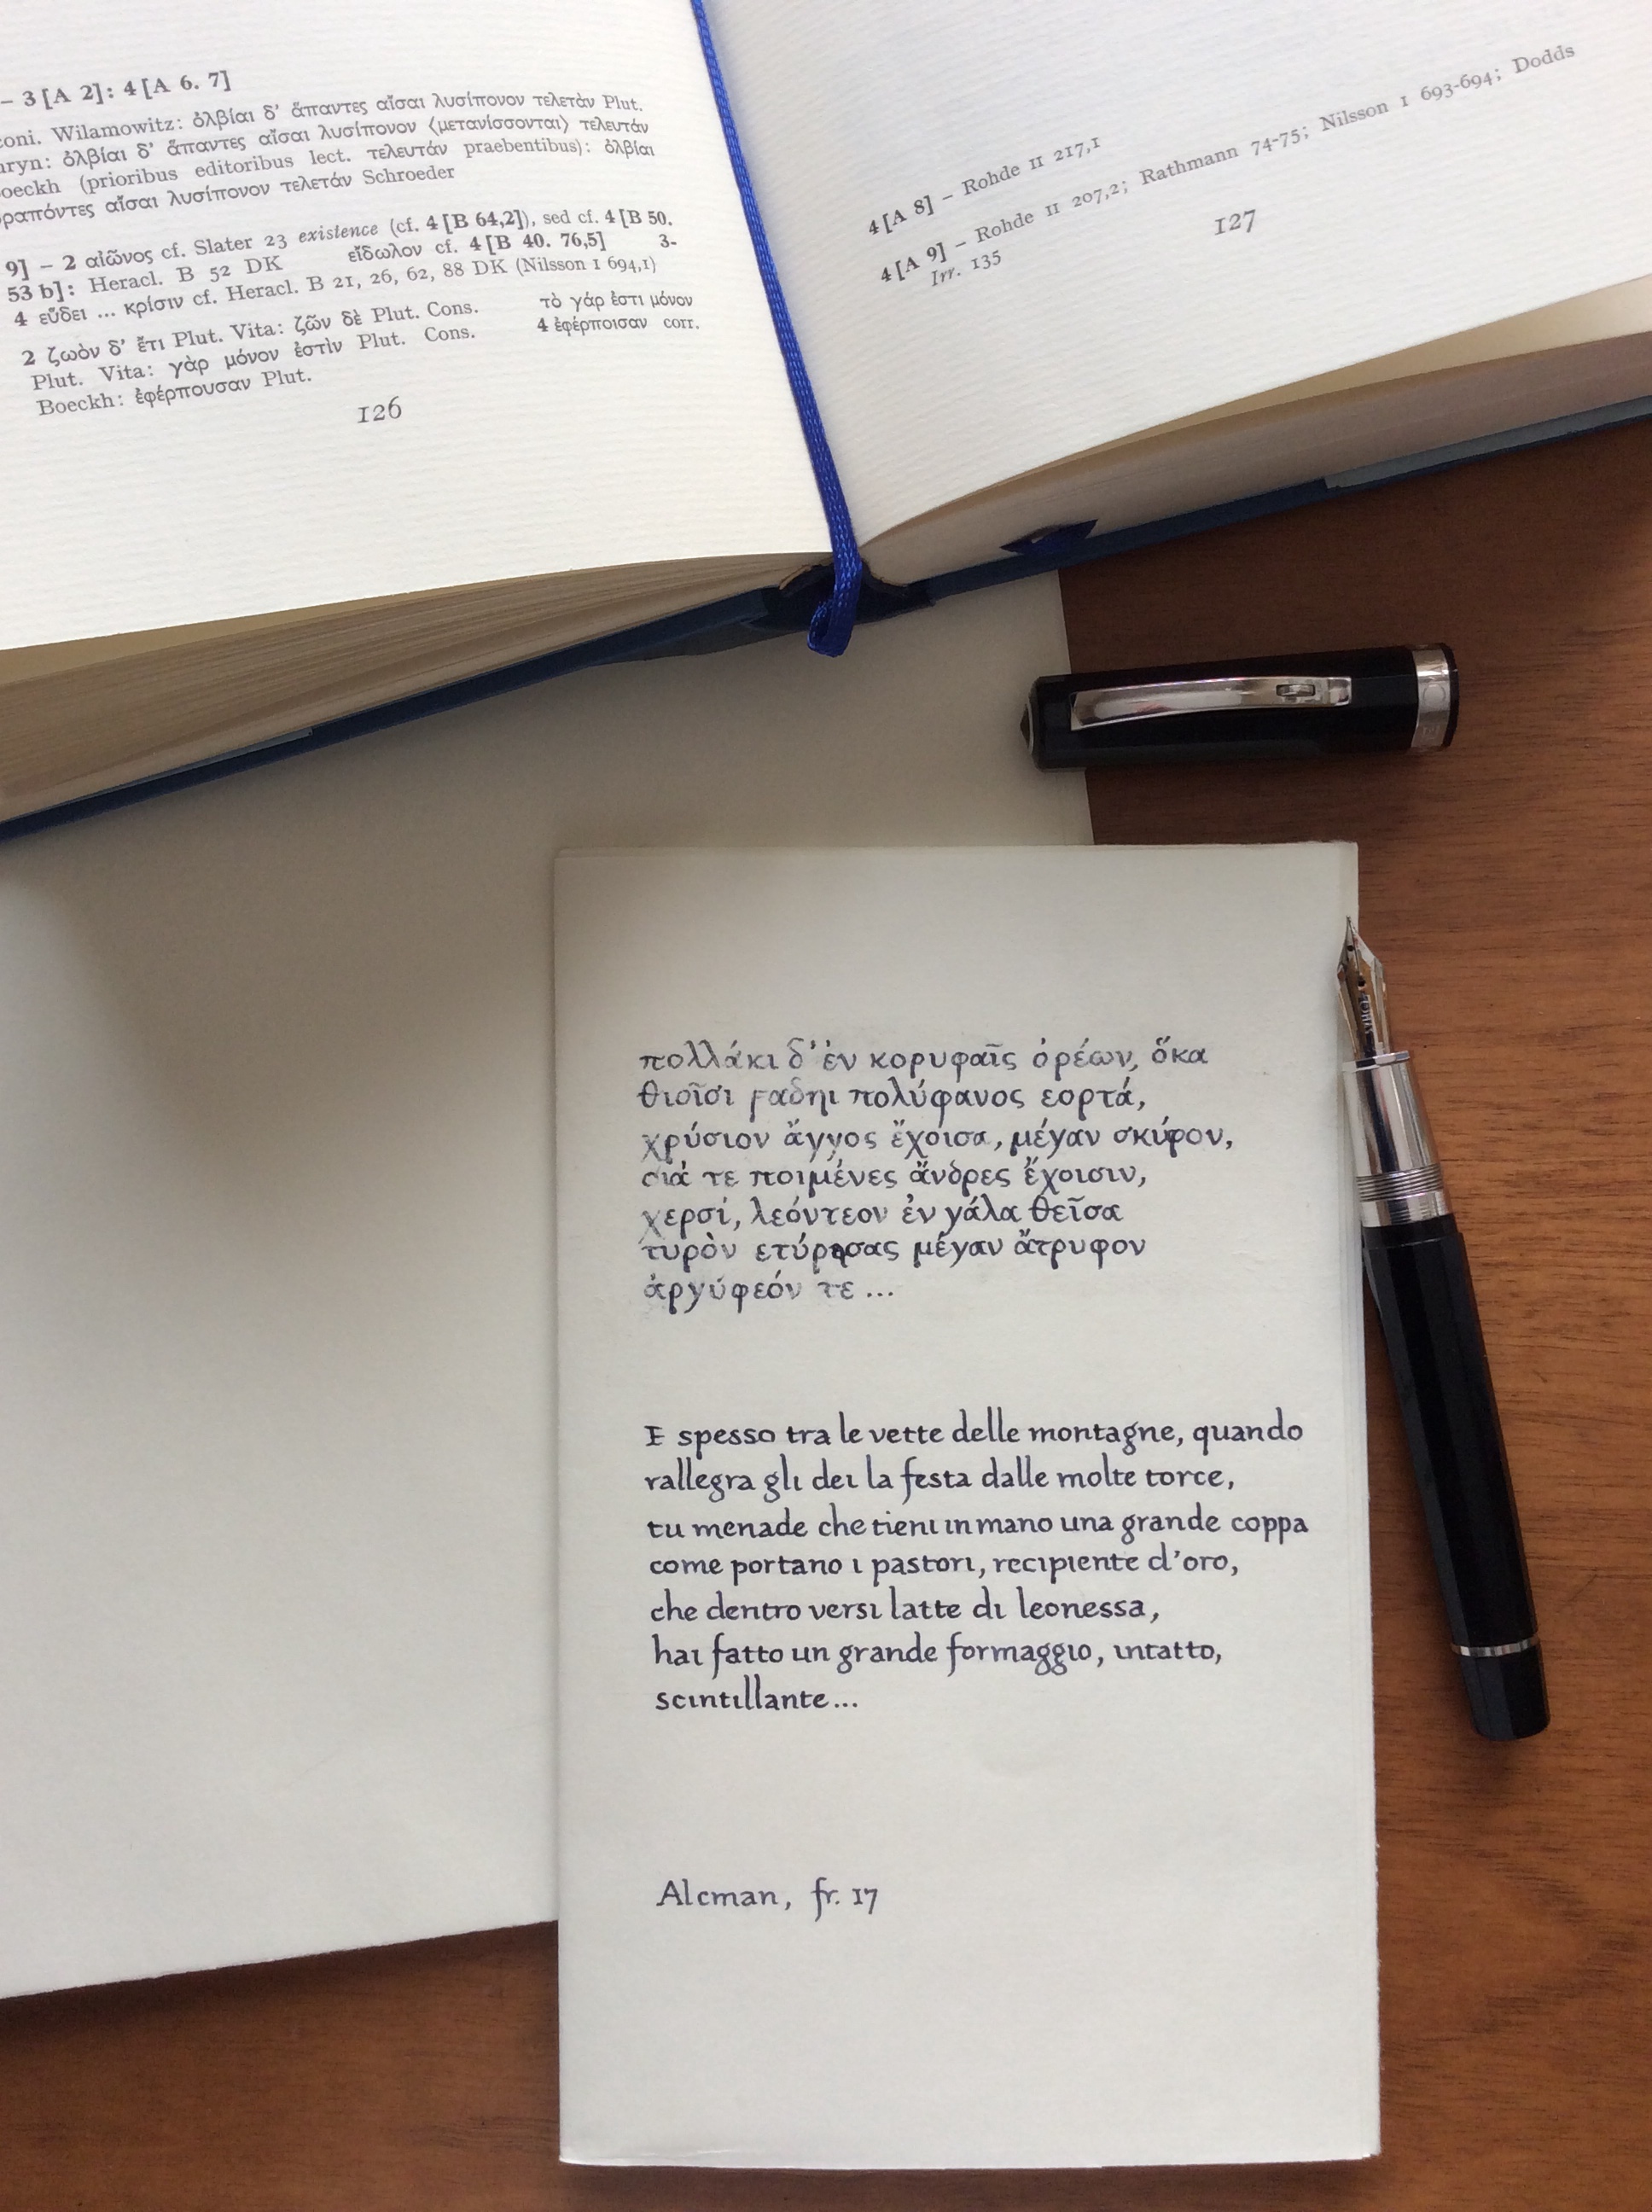 – 3 [A 2]: 4 [A 6. 7]
coni. Wilamowitz: ὀλβίαι δ' ἅπαντες αἴσαι λυσίπονον τελετὰν Plut.
ὀλβίαι δ' ἅπαντες αἴσαι λυσίπονον ⟨μετανίσσονται⟩ τελευτάν
Boeckh (prioribus editoribus lect. τελευτάν praebentibus): ὀλβίαι
αἴσαι λυσίπονον τελετάν Schroeder
9] – 2 αἰῶνος cf. Slater 23 existence (cf. 4 [B 64,2]), sed cf. 4 [B 50.
53 b]: Heracl. B 52 DK εἴδωλον cf. 4 [B 40. 76,5] 3-
4 εὕδει ... κρίσιν cf. Heracl. B 21, 26, 62, 88 DK (Nilsson I 694,1)
2 ζωὸν δ' ἔτι Plut. Vita: ζῶν δὲ Plut. Cons. τὸ γάρ ἐστι μόνον
Plut. Vita: γὰρ μόνον ἐστὶν Plut. Cons. 4 ἐφέρποισαν corr.
Boeckh: ἐφέρπουσαν Plut.
126
4 [A 8] – Rohde II 217,1
4 [A 9] – Rohde II 207,2; Rathmann 74-75; Nilsson I 693-694; Dodds
Irr. 135
127
πολλάκι δ' ἐν κορυφαῖς ὀρέων, ὅκα
θιοῖσι ϝαδηι πολύφανος εορτά,
χρύσιον ἄγγος ἔχοισα, μέγαν σκύφον,
οιά τε ποιμένες ἄνδρες ἔχοισιν,
χερσί, λεόντεον ἐν γάλα θεῖσα
τυρὸν ετύρησας μέγαν ἄτρυφον
ἀργύφεόν τε ...
E spesso tra le vette delle montagne, quando
rallegra gli dei la festa dalle molte torce,
tu menade che tieni in mano una grande coppa
come portano i pastori, recipiente d'oro,
che dentro versi latte di leonessa,
hai fatto un grande formaggio, intatto,
scintillante...
Alcman, fr. 17